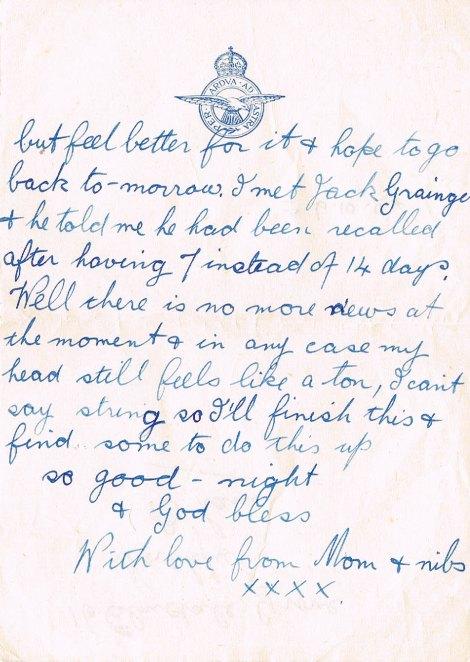 PER · ARDVA · AD · ASTRA
but feel better for it & hope to go
back to-morrow. I met Jack Grainge
& he told me he had been recalled
after having 7 instead of 14 days.
Well there is no more news at
the moment & in any case my
head still feels like a ton, I cant
say string so I'll finish this &
find some to do this up
so good-night
& God bless
With love from Mom & nibs
xxxx.